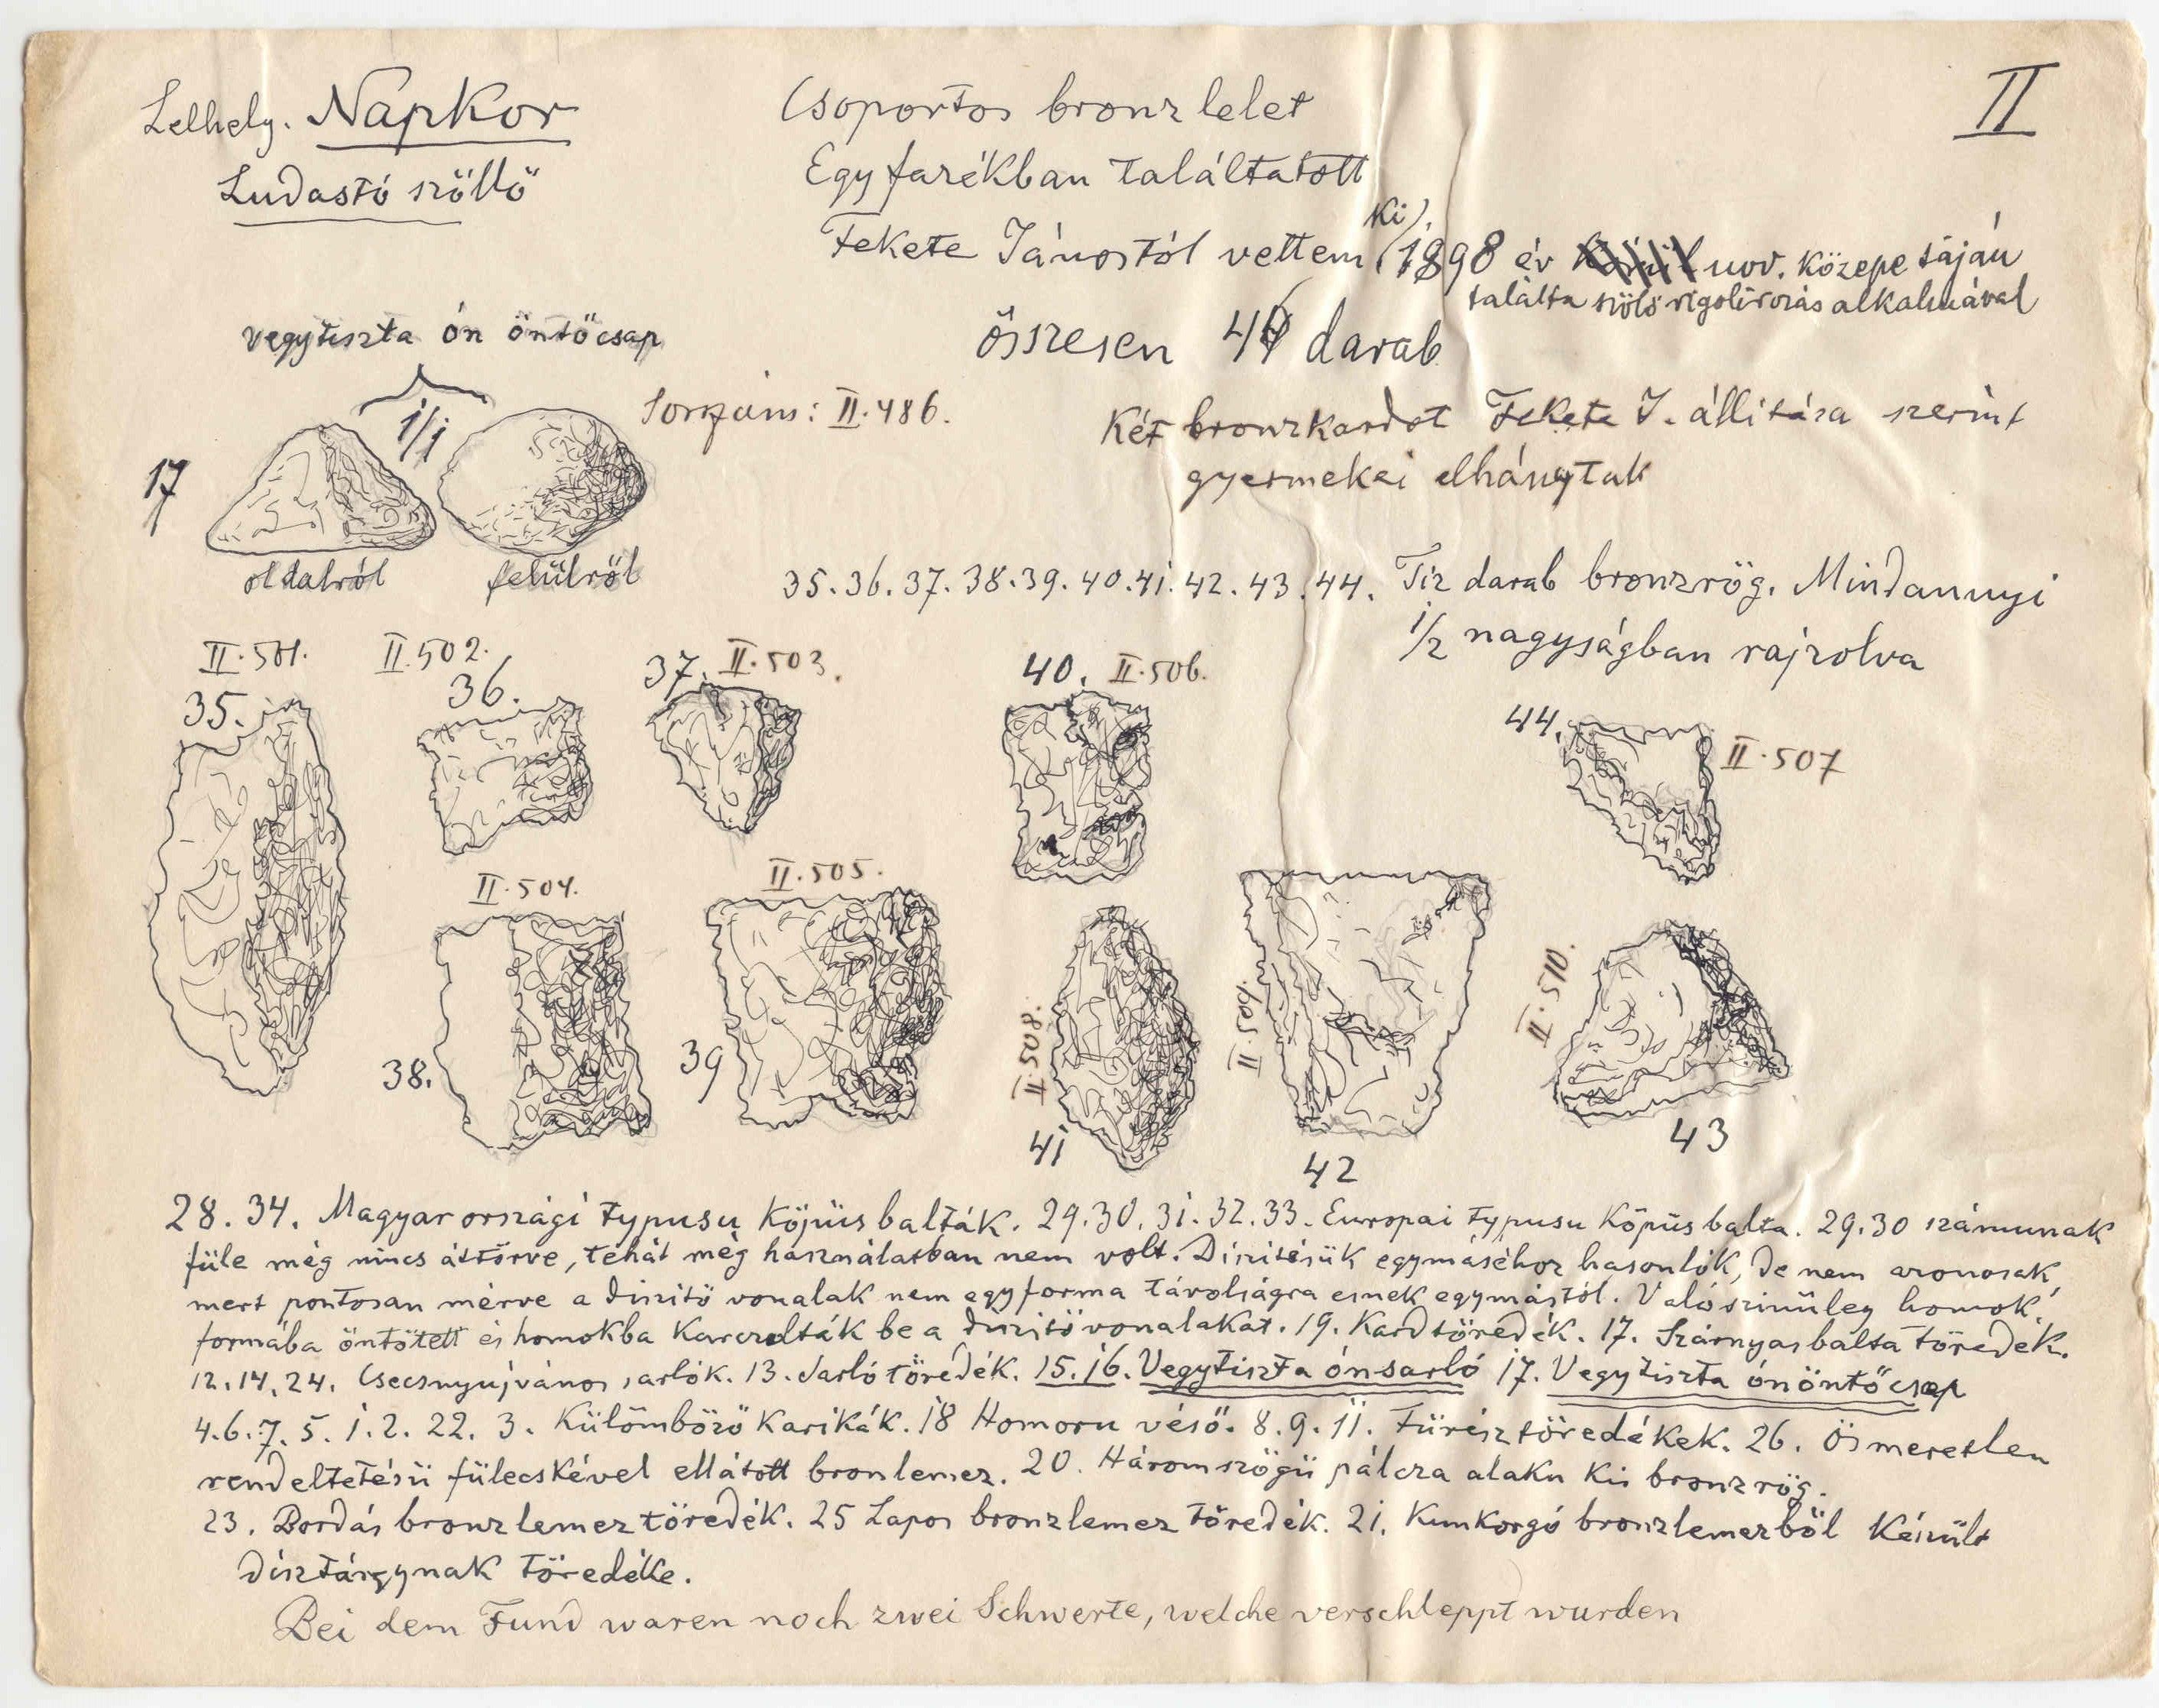 Lelhely. Napkor
Ludastó szőllő
Csoportos bronz lelet
Egy fazékban találtatott
Fekete Jánostól vettem (ki)
1898 év nov. közepe táján
találta szőlő rigolirozás alkalmával
II
összesen darab
vegytiszta ón öntőcsap
1/1
Sorszám: II.486.
17
oldalról felülről
Két bronzkardot Fekete J. állitása szerint
gyermekei elhánytak
35.36.37.38.39.40.41.42.43.44. Tiz darab bronzrög. Mindannyi
1/2 nagyságban rajzolva
II.501. II.502. II.503. II.506.
35. 36. 37. 40. 44. II.507
II.504. II.505.
II.508. II.509. II.510.
38. 39 41 42 43
28. 34. Magyarországi typusu köpüs balták. 29.30.31.32.33. Europai typusu köpüs balta. 29.30 számunak
füle még nincs áttörve, tehát még használatban nem volt. Diszitésük egymáséhoz hasonlók, de nem azonosak,
mert pontosan mérve a diszitő vonalak nem egyforma távolságra esnek egymástól. Valószinüleg homok-
formába öntötett és homokba karczolták be a diszitővonalakat. 19. Kardtöredék. 17. Szárnyas balta töredék.
12.14.24. Csecsnyujványos sarlók. 13. Sarló töredék. 15.16. Vegytiszta ónsarló 17. Vegytiszta ónöntőcsap
4.6.7.5.1.2.22.3. Külömböző karikák. 18 Homoru véső. 8.9.11. Fürész töredékek. 26. Ösmeretlen
rendeltetésü fülecskével ellátott bronlemez. 20. Háromszögü pálcza alaku kis bronzrög.
23. Bordás bronzlemez töredék. 25 Lapos bronzlemez töredék. 21. Kunkorgó bronzlemezből készült
disztárgynak töredéke.
Bei dem Fund waren noch zwei Schwerte, welche verschleppt wurden